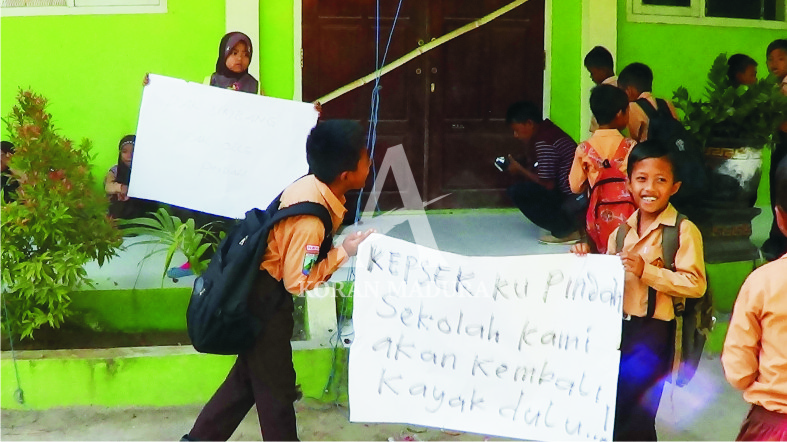 KEPSEK ku Pindah
Sekolah kami
akan kembali
kayak dulu...!
KORAN MADURA